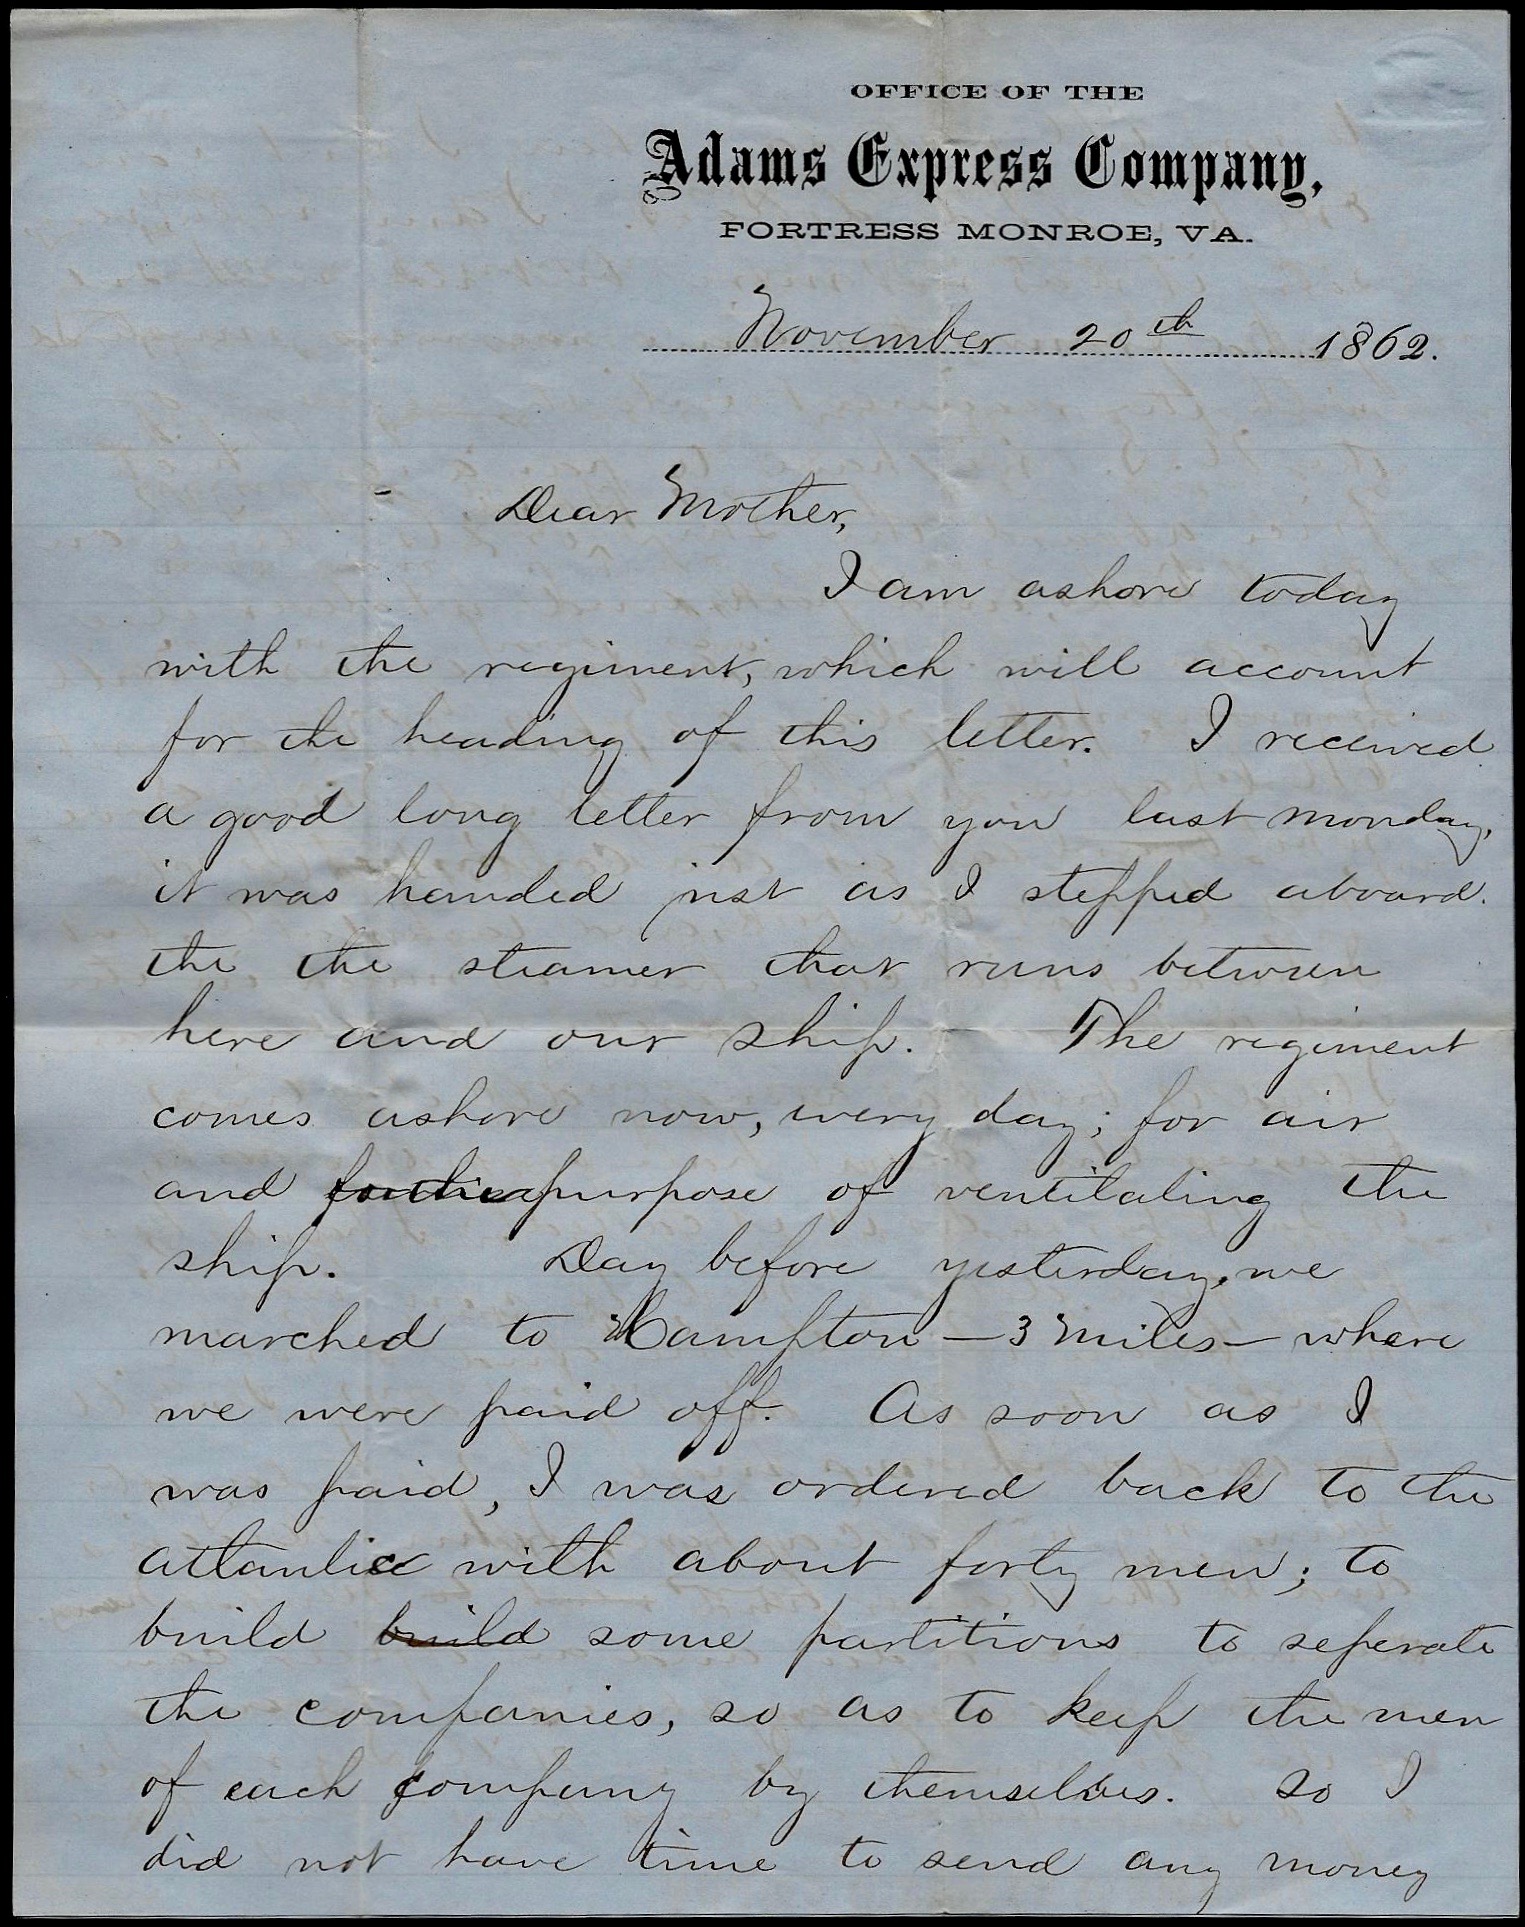 OFFICE OF THE
Adams Express Company,
FORTRESS MONROE, VA.
November 20th 1862.
Dear Mother,
I am ashore today
with the regiment, which will account
for the heading of this letter. I received
a good long letter from you last monday,
it was handed just as I stepped aboard.
the the steamer that runs between
here and our ship. The regiment
comes ashore now, every day; for air
and purpose of ventilating the
ship. Day before yesterday, we
marched to Hampton - 3 miles - where
we were paid off. As soon as I
was paid, I was ordered back to the
atlantic with about forty men; to
build build some partitions to seperate
the companies, so as to keep the men
of each company by themselves. So I
did not have time to send any money